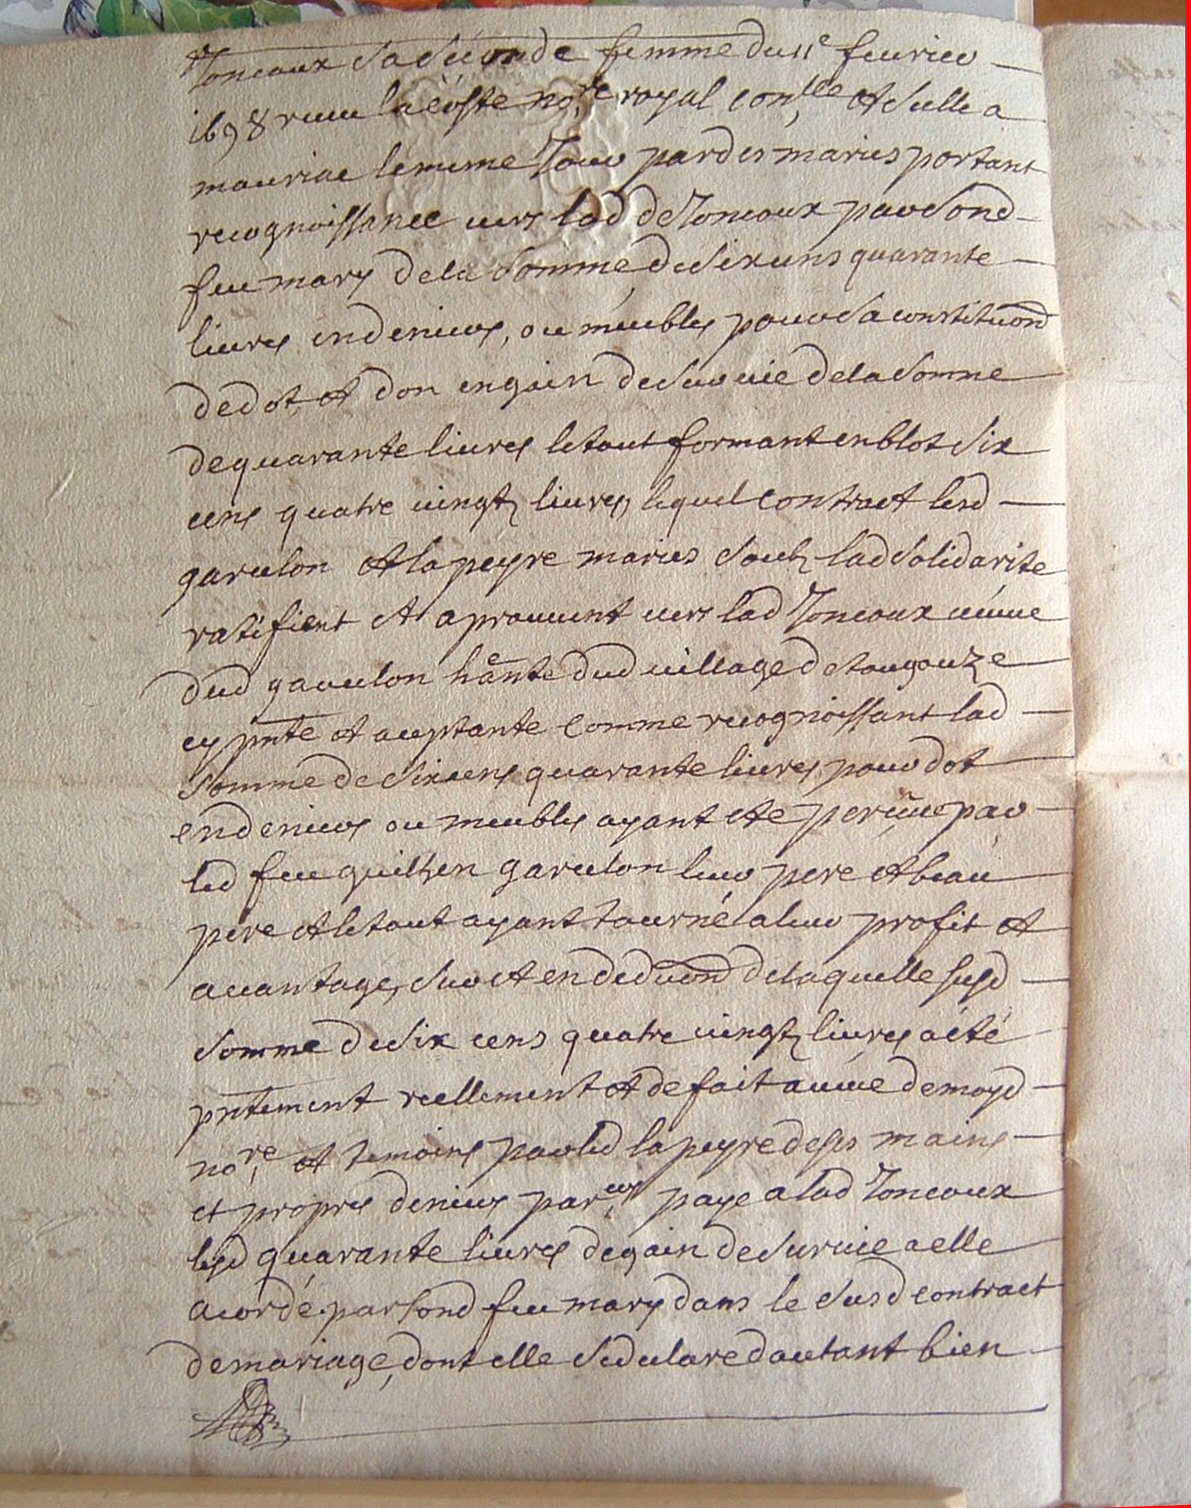 Joncoux sa seconde femme du 11e feurier
1698 receu lacoste nore royal conlle et scelle a
mauriac le meme jour par desmaries portant
recognoissance uers lad de Joncoux par sond
feu mary de la somme de six cens quarante
liures en deniers, ou meubles pour sa constituon
de dot, et don en gain de suruie de la somme
de quarante liures le tout formant en blot six
cens quatre uingts liures, lequel contract lesd
garulon et lapeyre maries soubs lad solidarite
ratifient et aprouuent uers lad Joncoux ueuue
dud garulon hante dud uillage de tougouze
cy pnte et aceptante comme recognoissant lad
somme de six cens quarante liures pour dot
en deniers ou meubles ayant ete perçue par
led feu guilhen garulon leur pere et beau
pere et le tout ayant tourné a leur profit et
auantage, sur et en deduon de laquelle susd
somme de six cens quatre uingts liures a été
pntement reellement et de fait a ueüe de moyd
nore, et temoins par led lapeyre de ses mains
et propres deniers par eux paye a lad Joncoux
lesd quarante liures de gain de suruie a elle
acordé par sond feu mary dans le susd contract
de mariage, dont elle se declare d autant bien